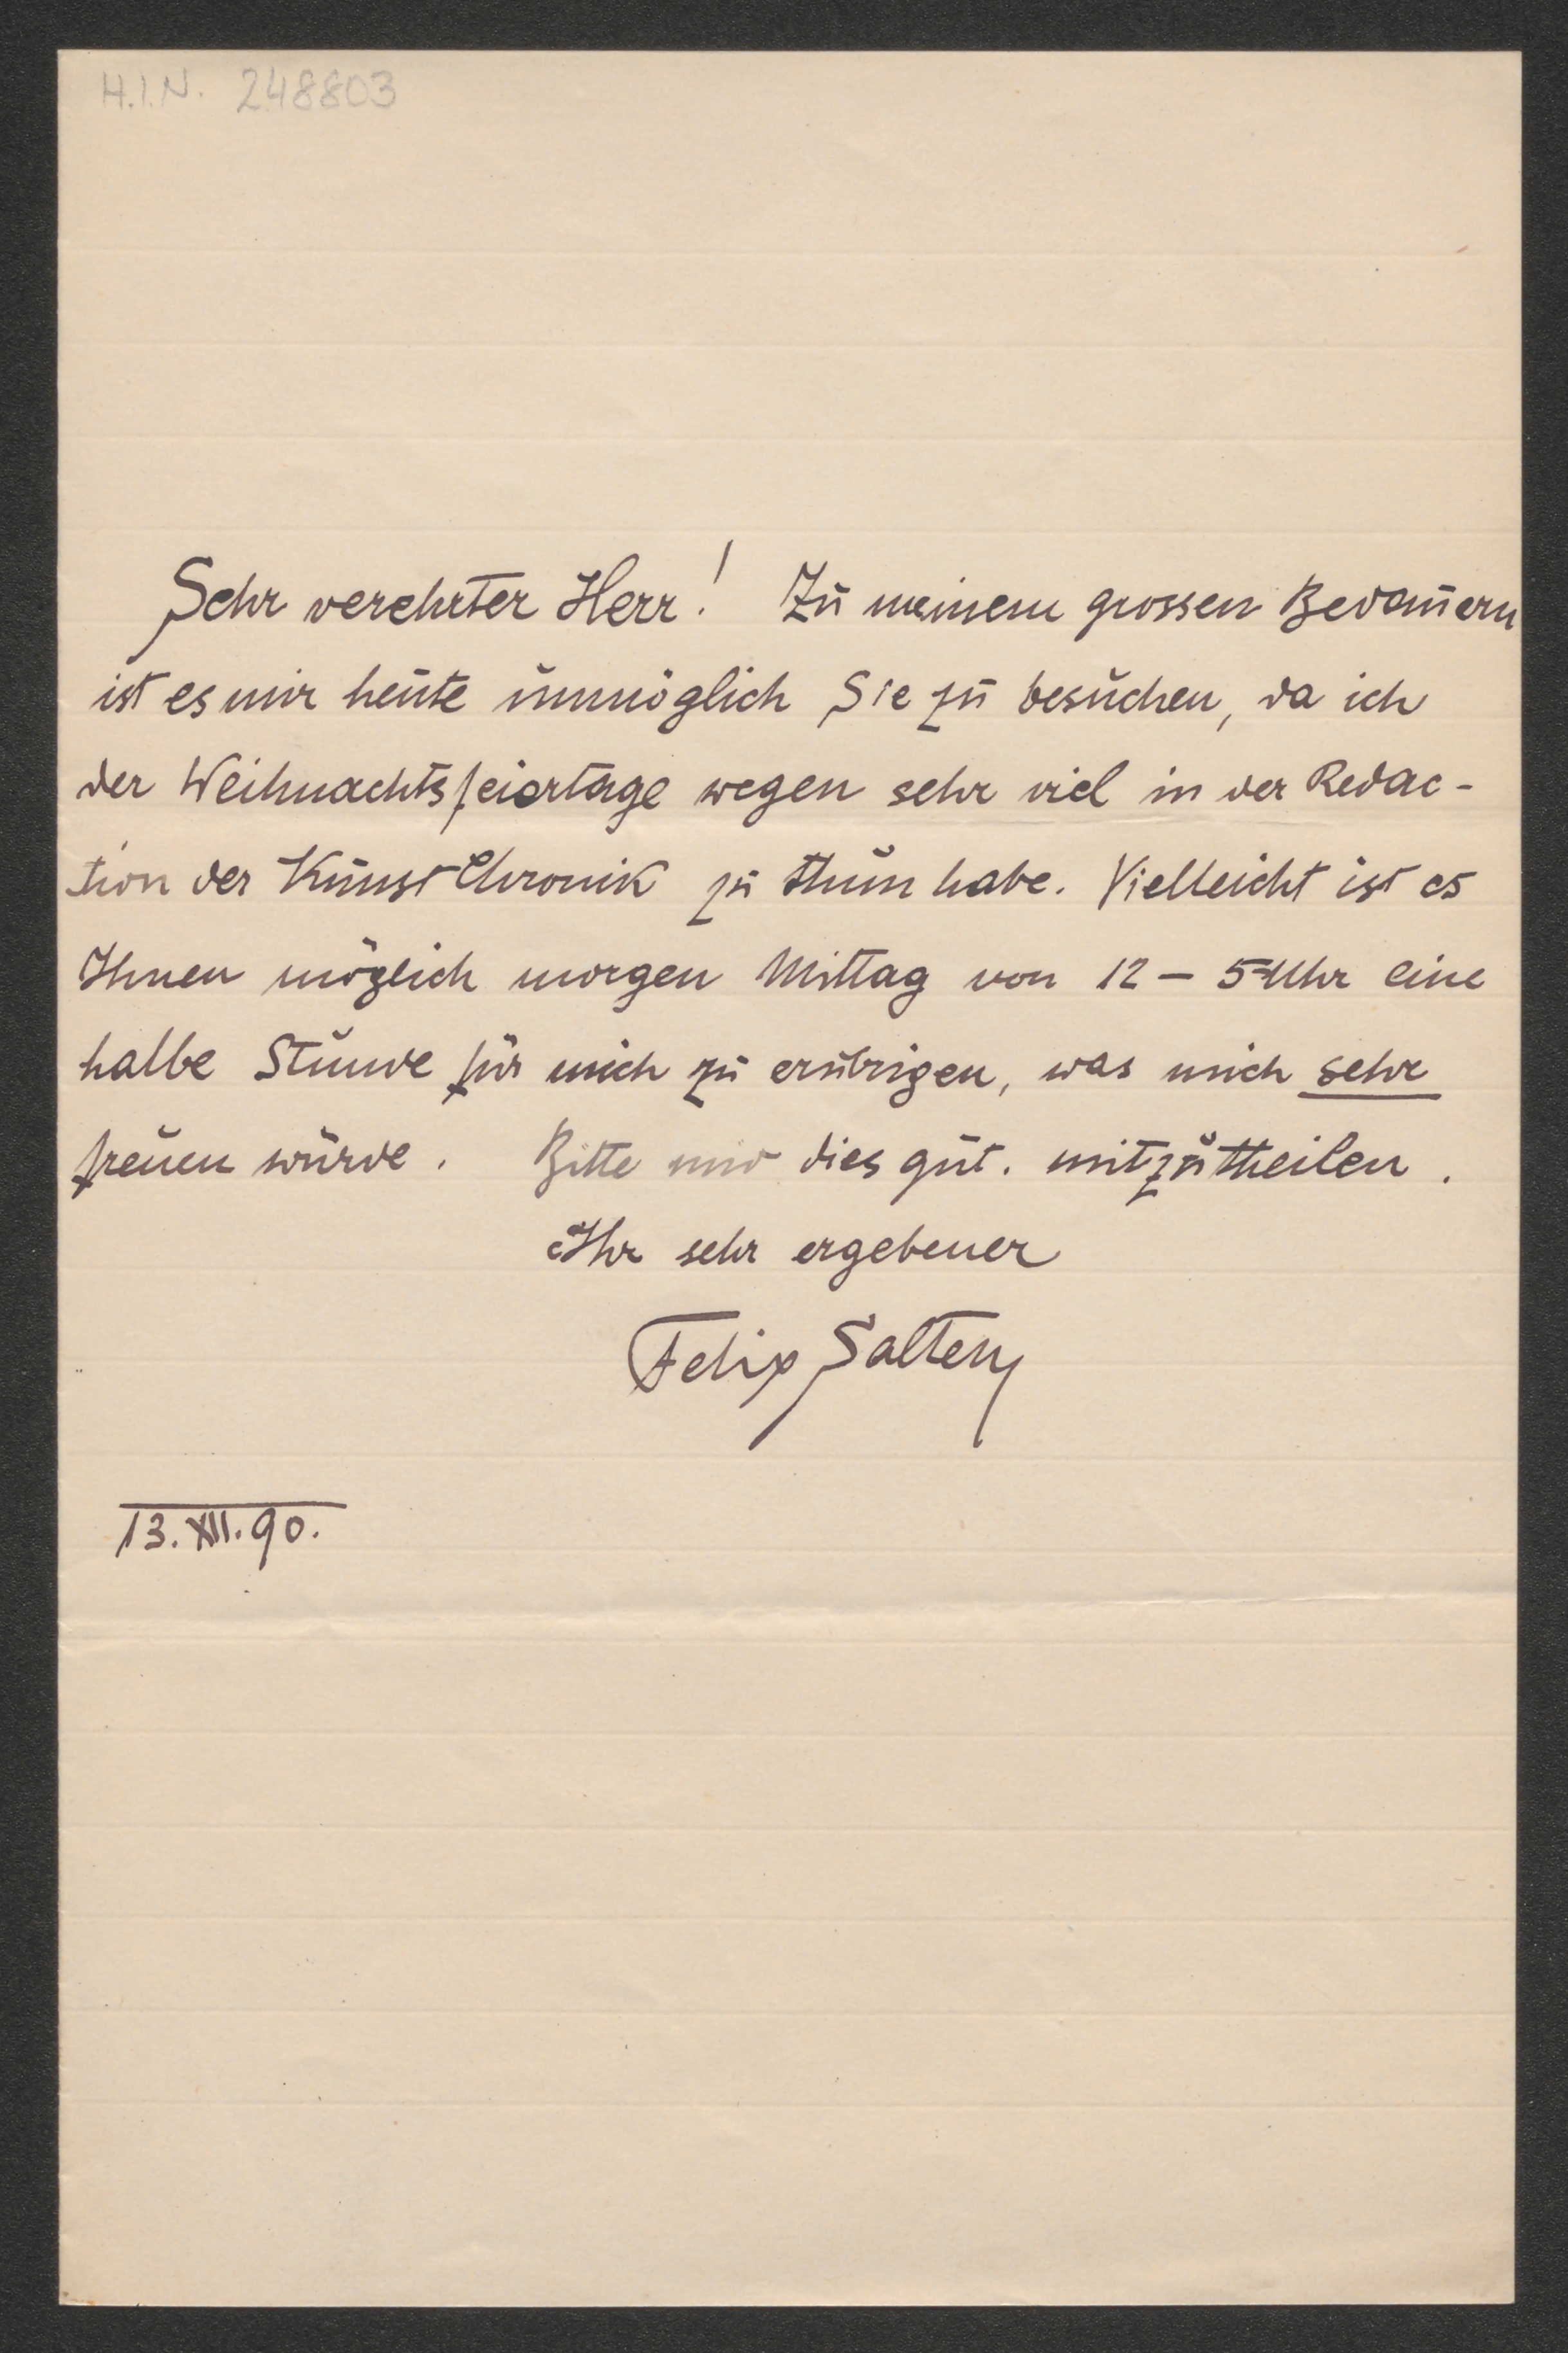 H.I.N. 248803
Sehr verehrter Herr! Zu meinem grossen Bedauern
ist es mir heute unmöglich Sie zu besuchen, da ich
der Weihnachtsfeiertage wegen sehr viel in der Redac-
tion der Kunst Chronik zu thun habe. Vielleicht ist es
Ihnen möglich morgen Mittag von 12 – 5 Uhr eine
halbe Stunde für mich zu erübrigen, was mich sehr
freuen würde. Bitte mir dies güt. mitzutheilen.
Ihr sehr ergebener
Felix Salten
13. XII. 90.